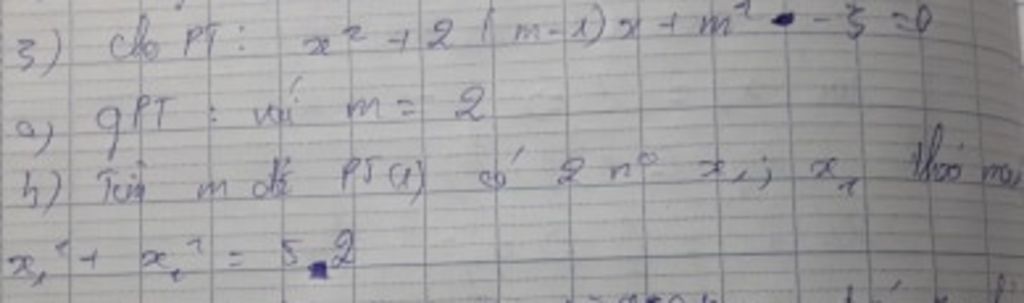 3) cho PT: x² + 2(m-1)x + m² - 3 = 0
a) gPT: với m = 2
b) Tìm m để PT(1) có 2 n⁰ x₁; x₂ thoả mã
x₁² + x₂² = 52